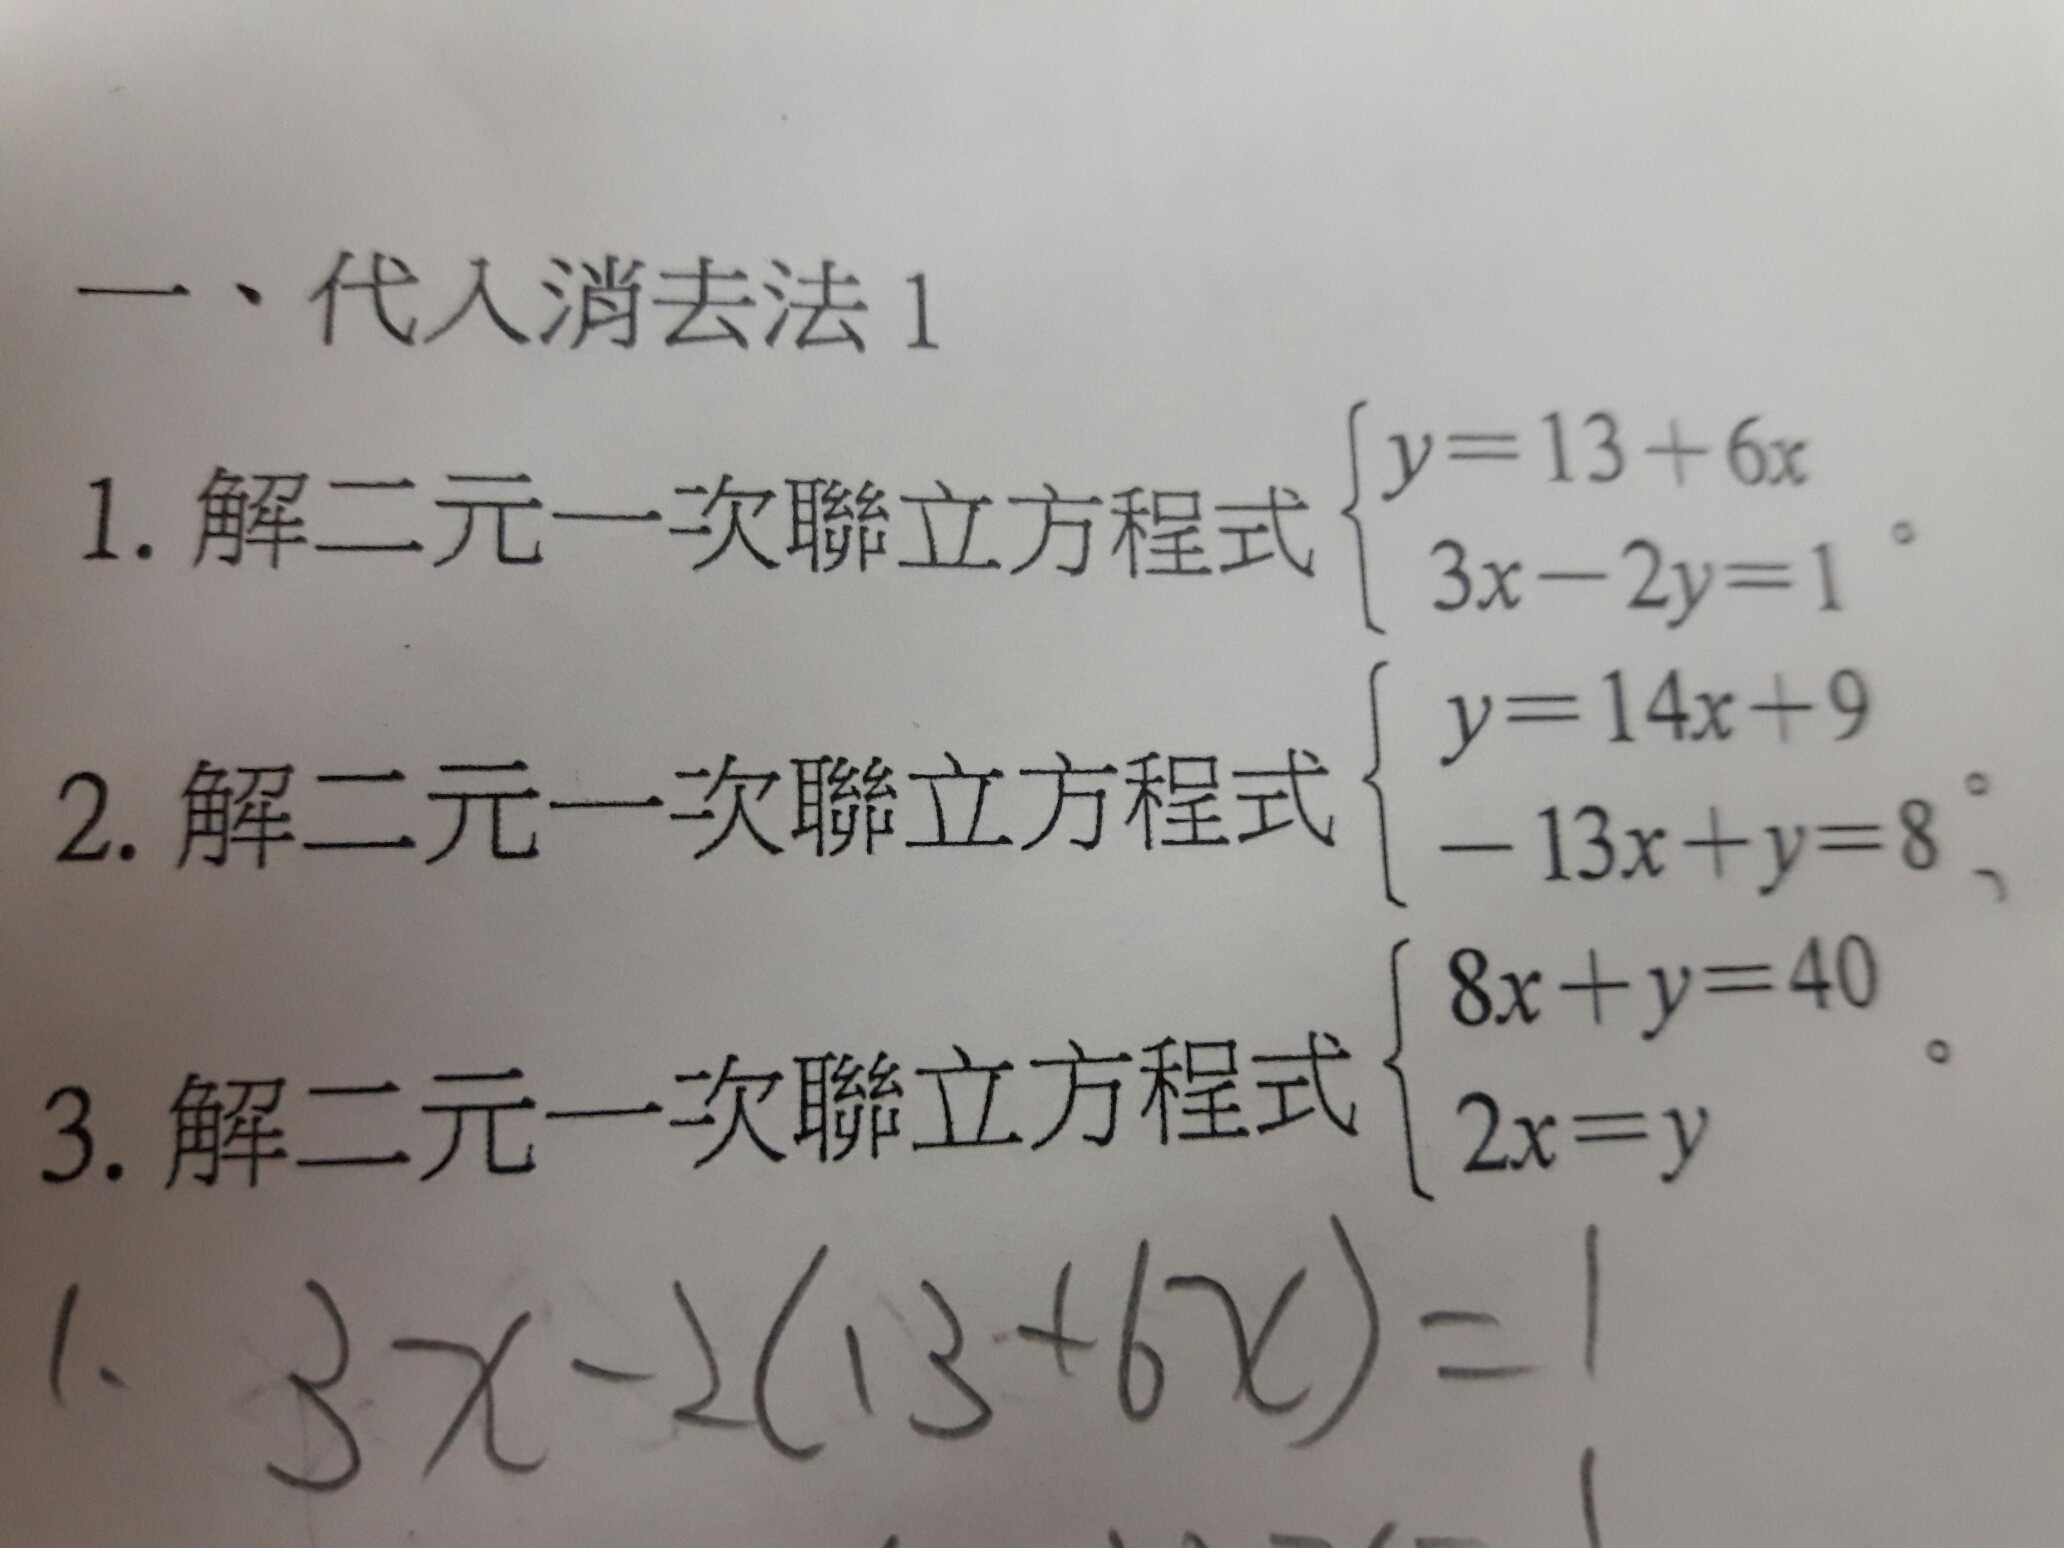 一、代入消去法1
1. 解二元一次聯立方程式 { y=13+6x
3x-2y=1 。
2. 解二元一次聯立方程式 { y=14x+9
-13x+y=8 。
3. 解二元一次聯立方程式 { 8x+y=40
2x=y 。
1. 3x-2(13+6x)=1